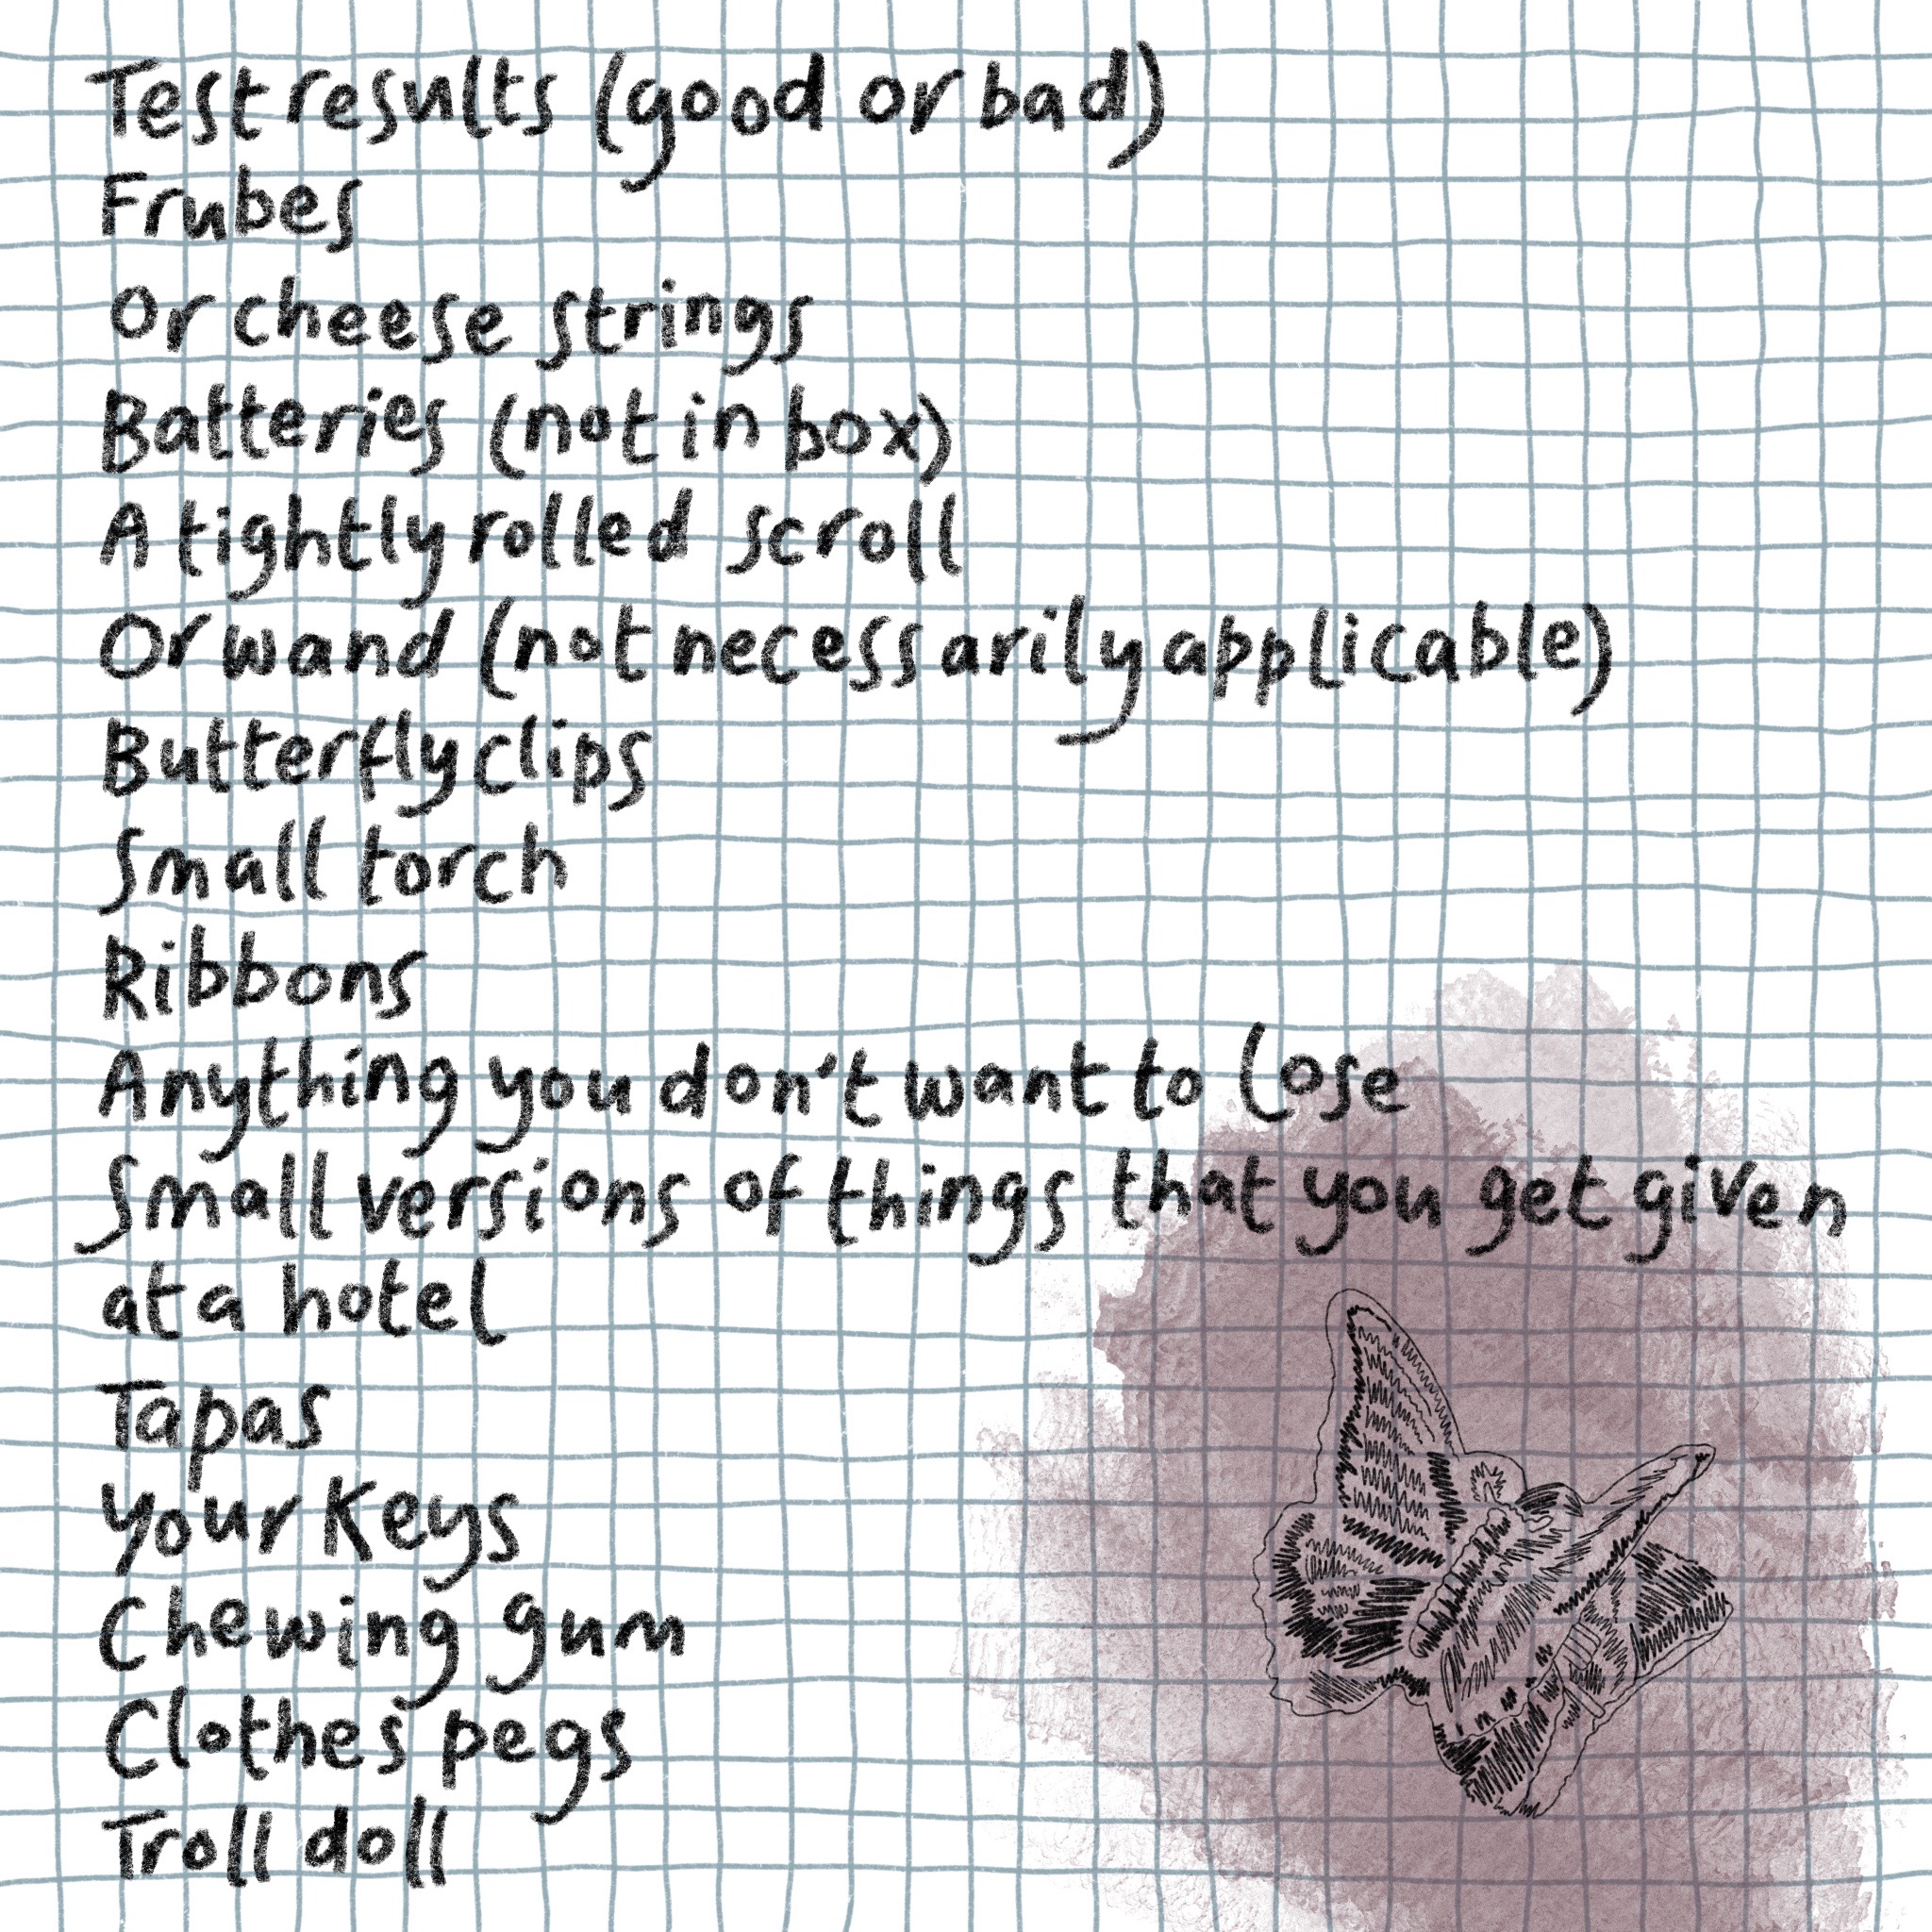 Test results (good or bad)
Frubes
Or cheese strings
Batteries (not in box)
A tightly rolled scroll
Or wand (not necessarily applicable)
Butterfly clips
Small torch
Ribbons
Anything you don't want to lose
Small versions of things that you get given
at a hotel
Tapas
Your Keys
Chewing gum
Clothes pegs
Troll doll